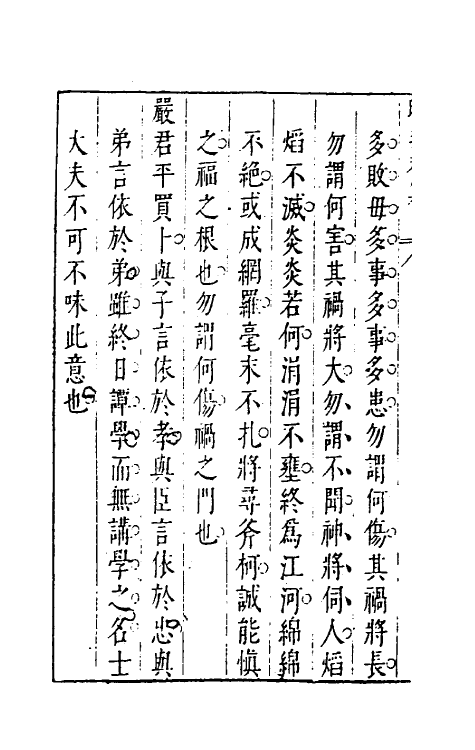 多敗毋多事多事多患勿謂何傷其禍將長
勿謂何害其禍將大勿謂不聞神將伺人熖
熖不滅炎炎若何涓涓不壅終為江河綿綿
不絕或成網羅毫末不扎將尋斧柯誠能慎
之福之根也勿謂何傷禍之門也
嚴君平買卜與子言依於孝與臣言依於忠與
弟言依於弟雖終日譚學而無講學之名士
大夫不可不味此意也